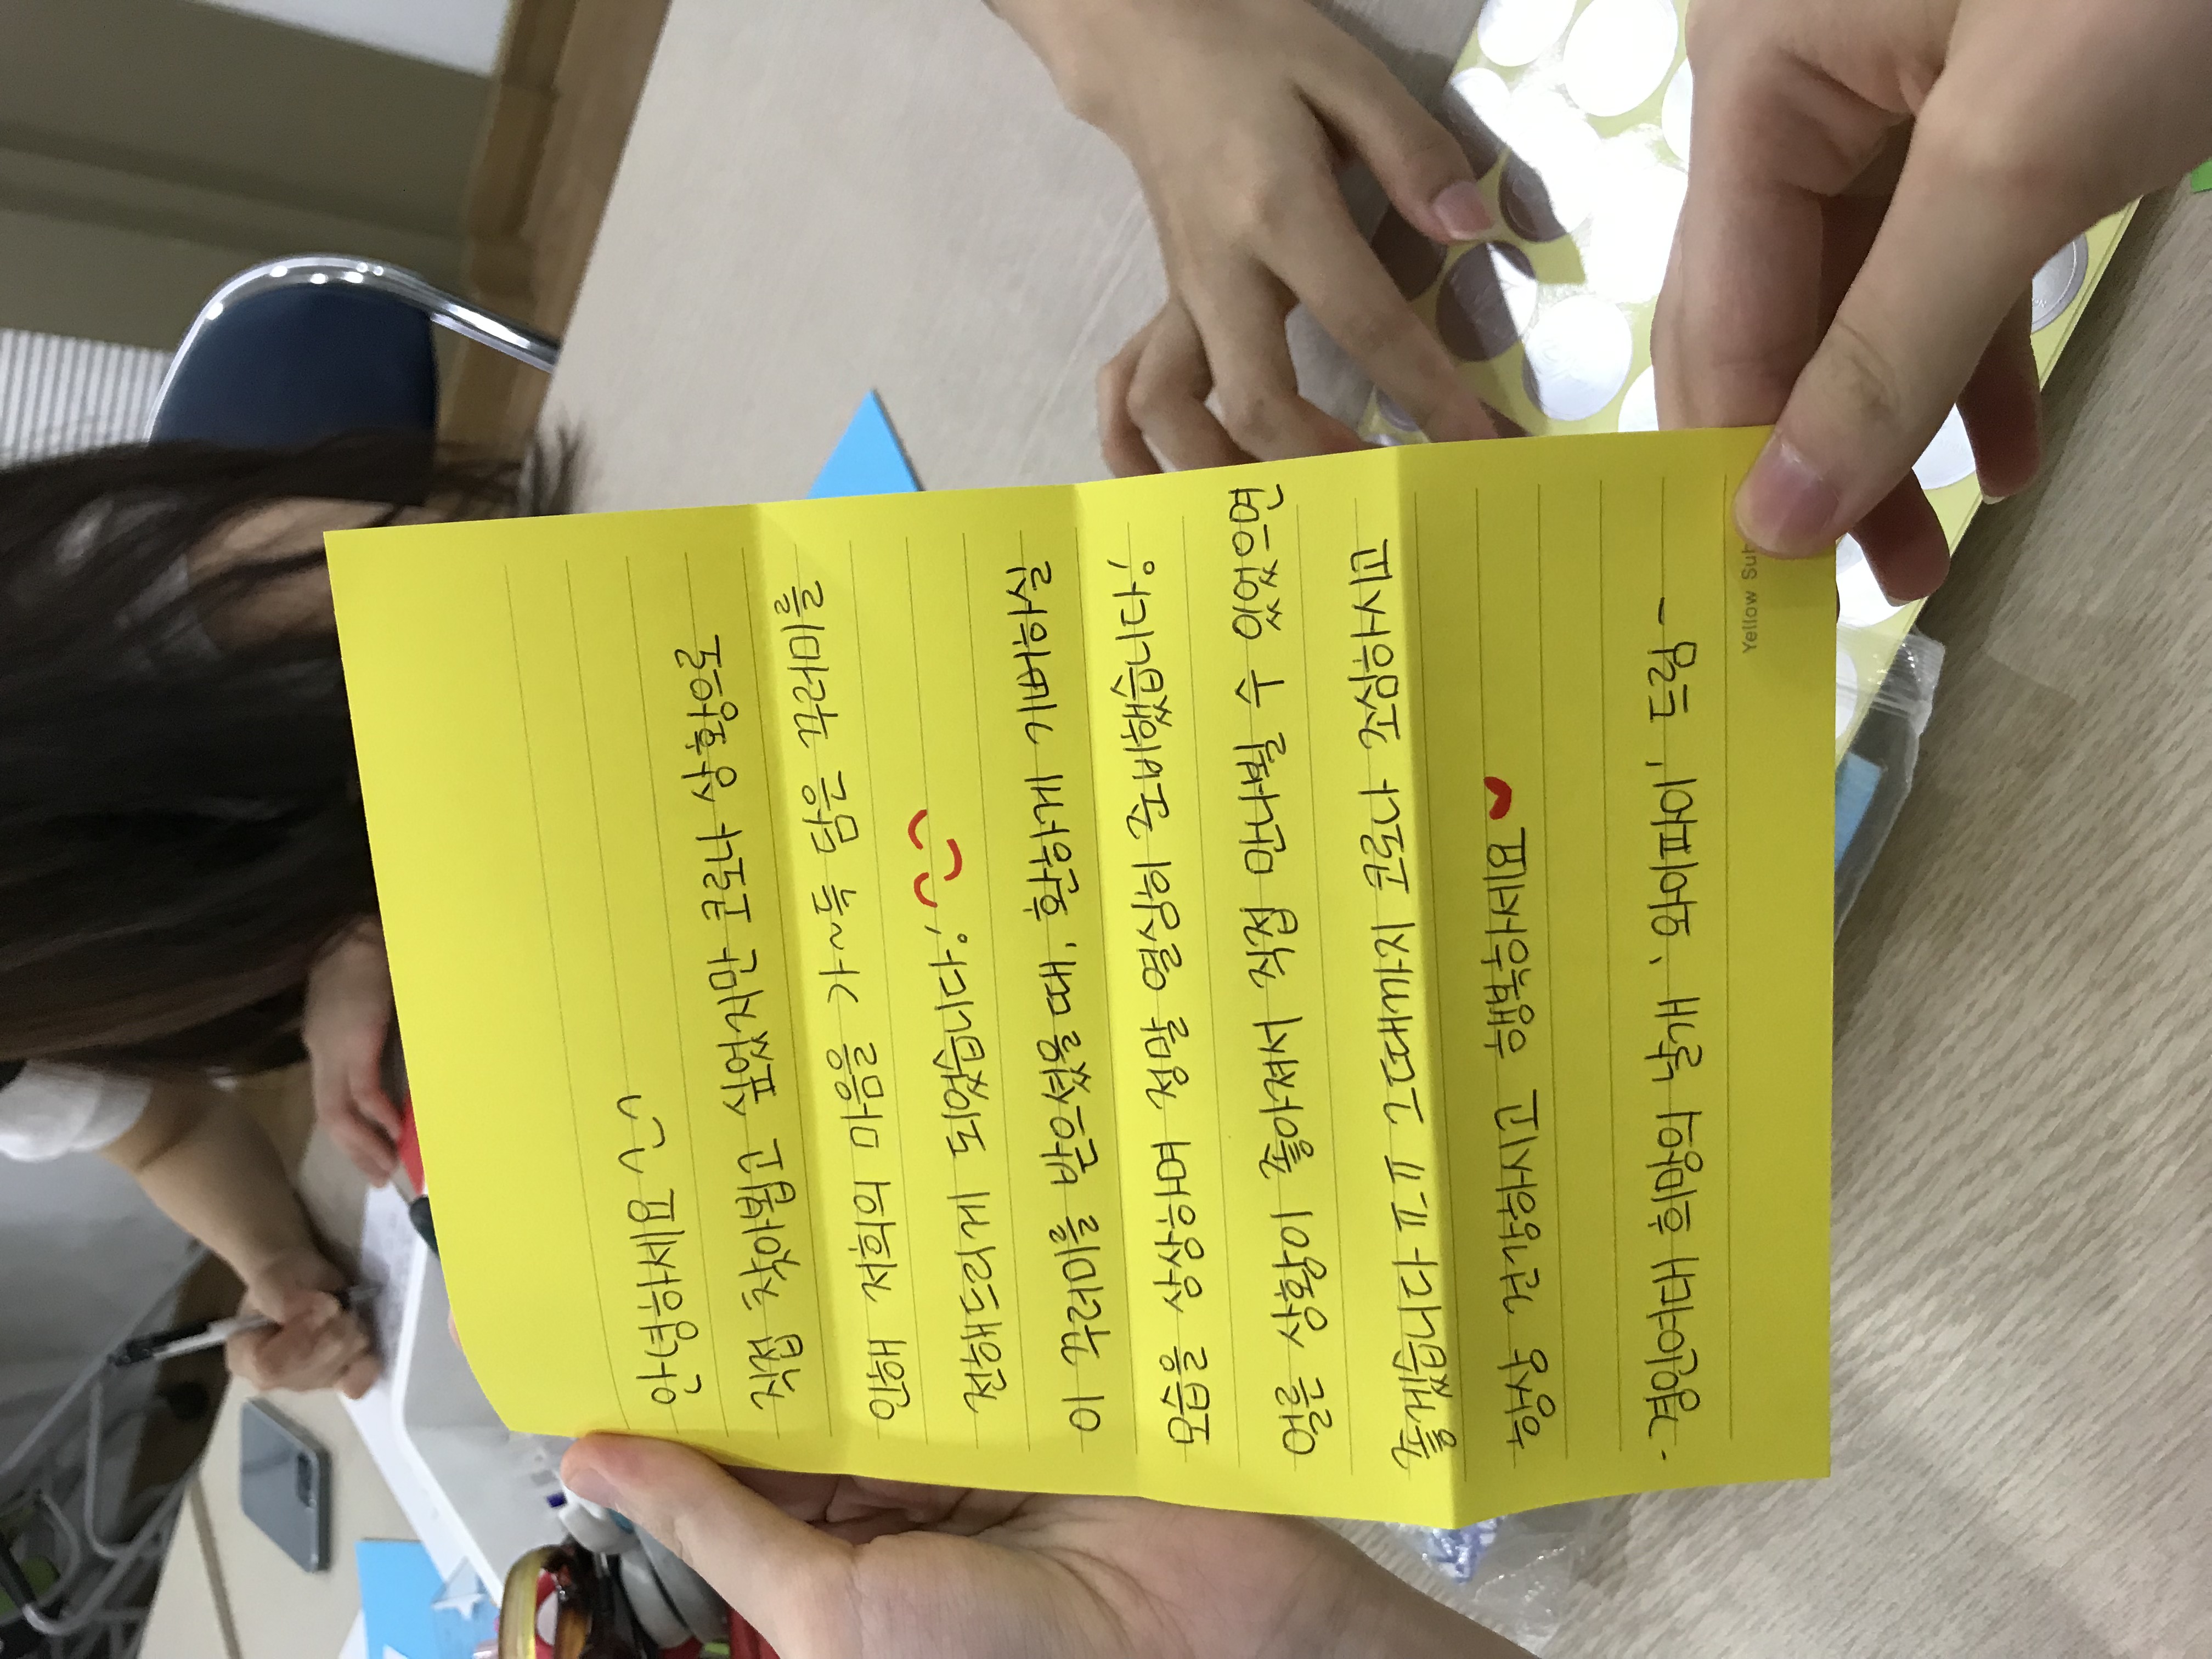 안녕하세요 ^^
직접 찾아뵙고 싶었지만 코로나 상황으로
인해 저희의 마음을 가~득 담은 꾸러미를
전해드리게 되었습니다!
이 꾸러미를 받으셨을 때, 환하게 기뻐하실
모습을 상상하며 정말 열심히 준비했습니다!
얼른 상황이 좋아져서 직접 만나뵐 수 있었으면
좋겠습니다 ㅠㅠ 그때까지 코로나 조심하시고
항상 건강하시고 행복하세요 ♥
- 경인여대 희망의 날개, '와이파이' 드림 -
Yellow Su